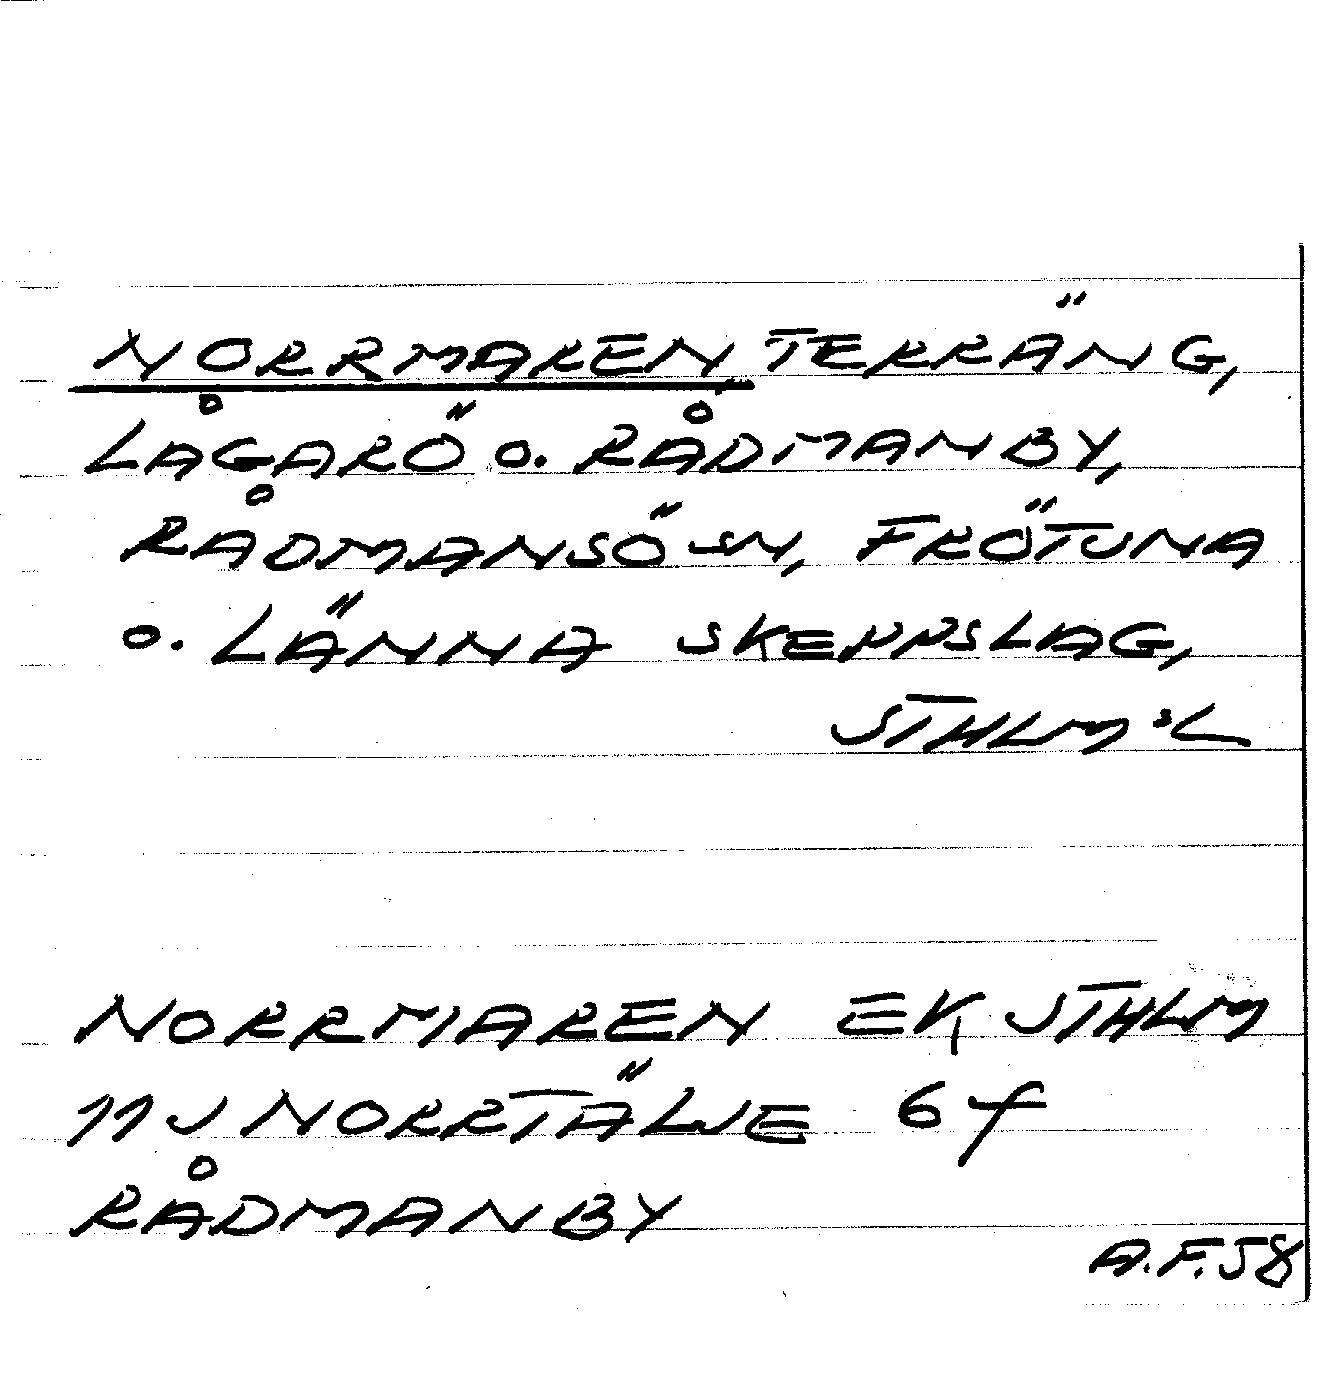 NORRMAREN TERRÄNG,
LÅGARÖ O. RÅDMANBY,
RÅDMANSÖ SN, FRÖTUNA
O. LÄNNA SKEPPSLAG,
STHLM'S L
NORRMAREN EK, STHLM
11J NORRTÄLJE 6f
RÅDMANBY
A.F. 58